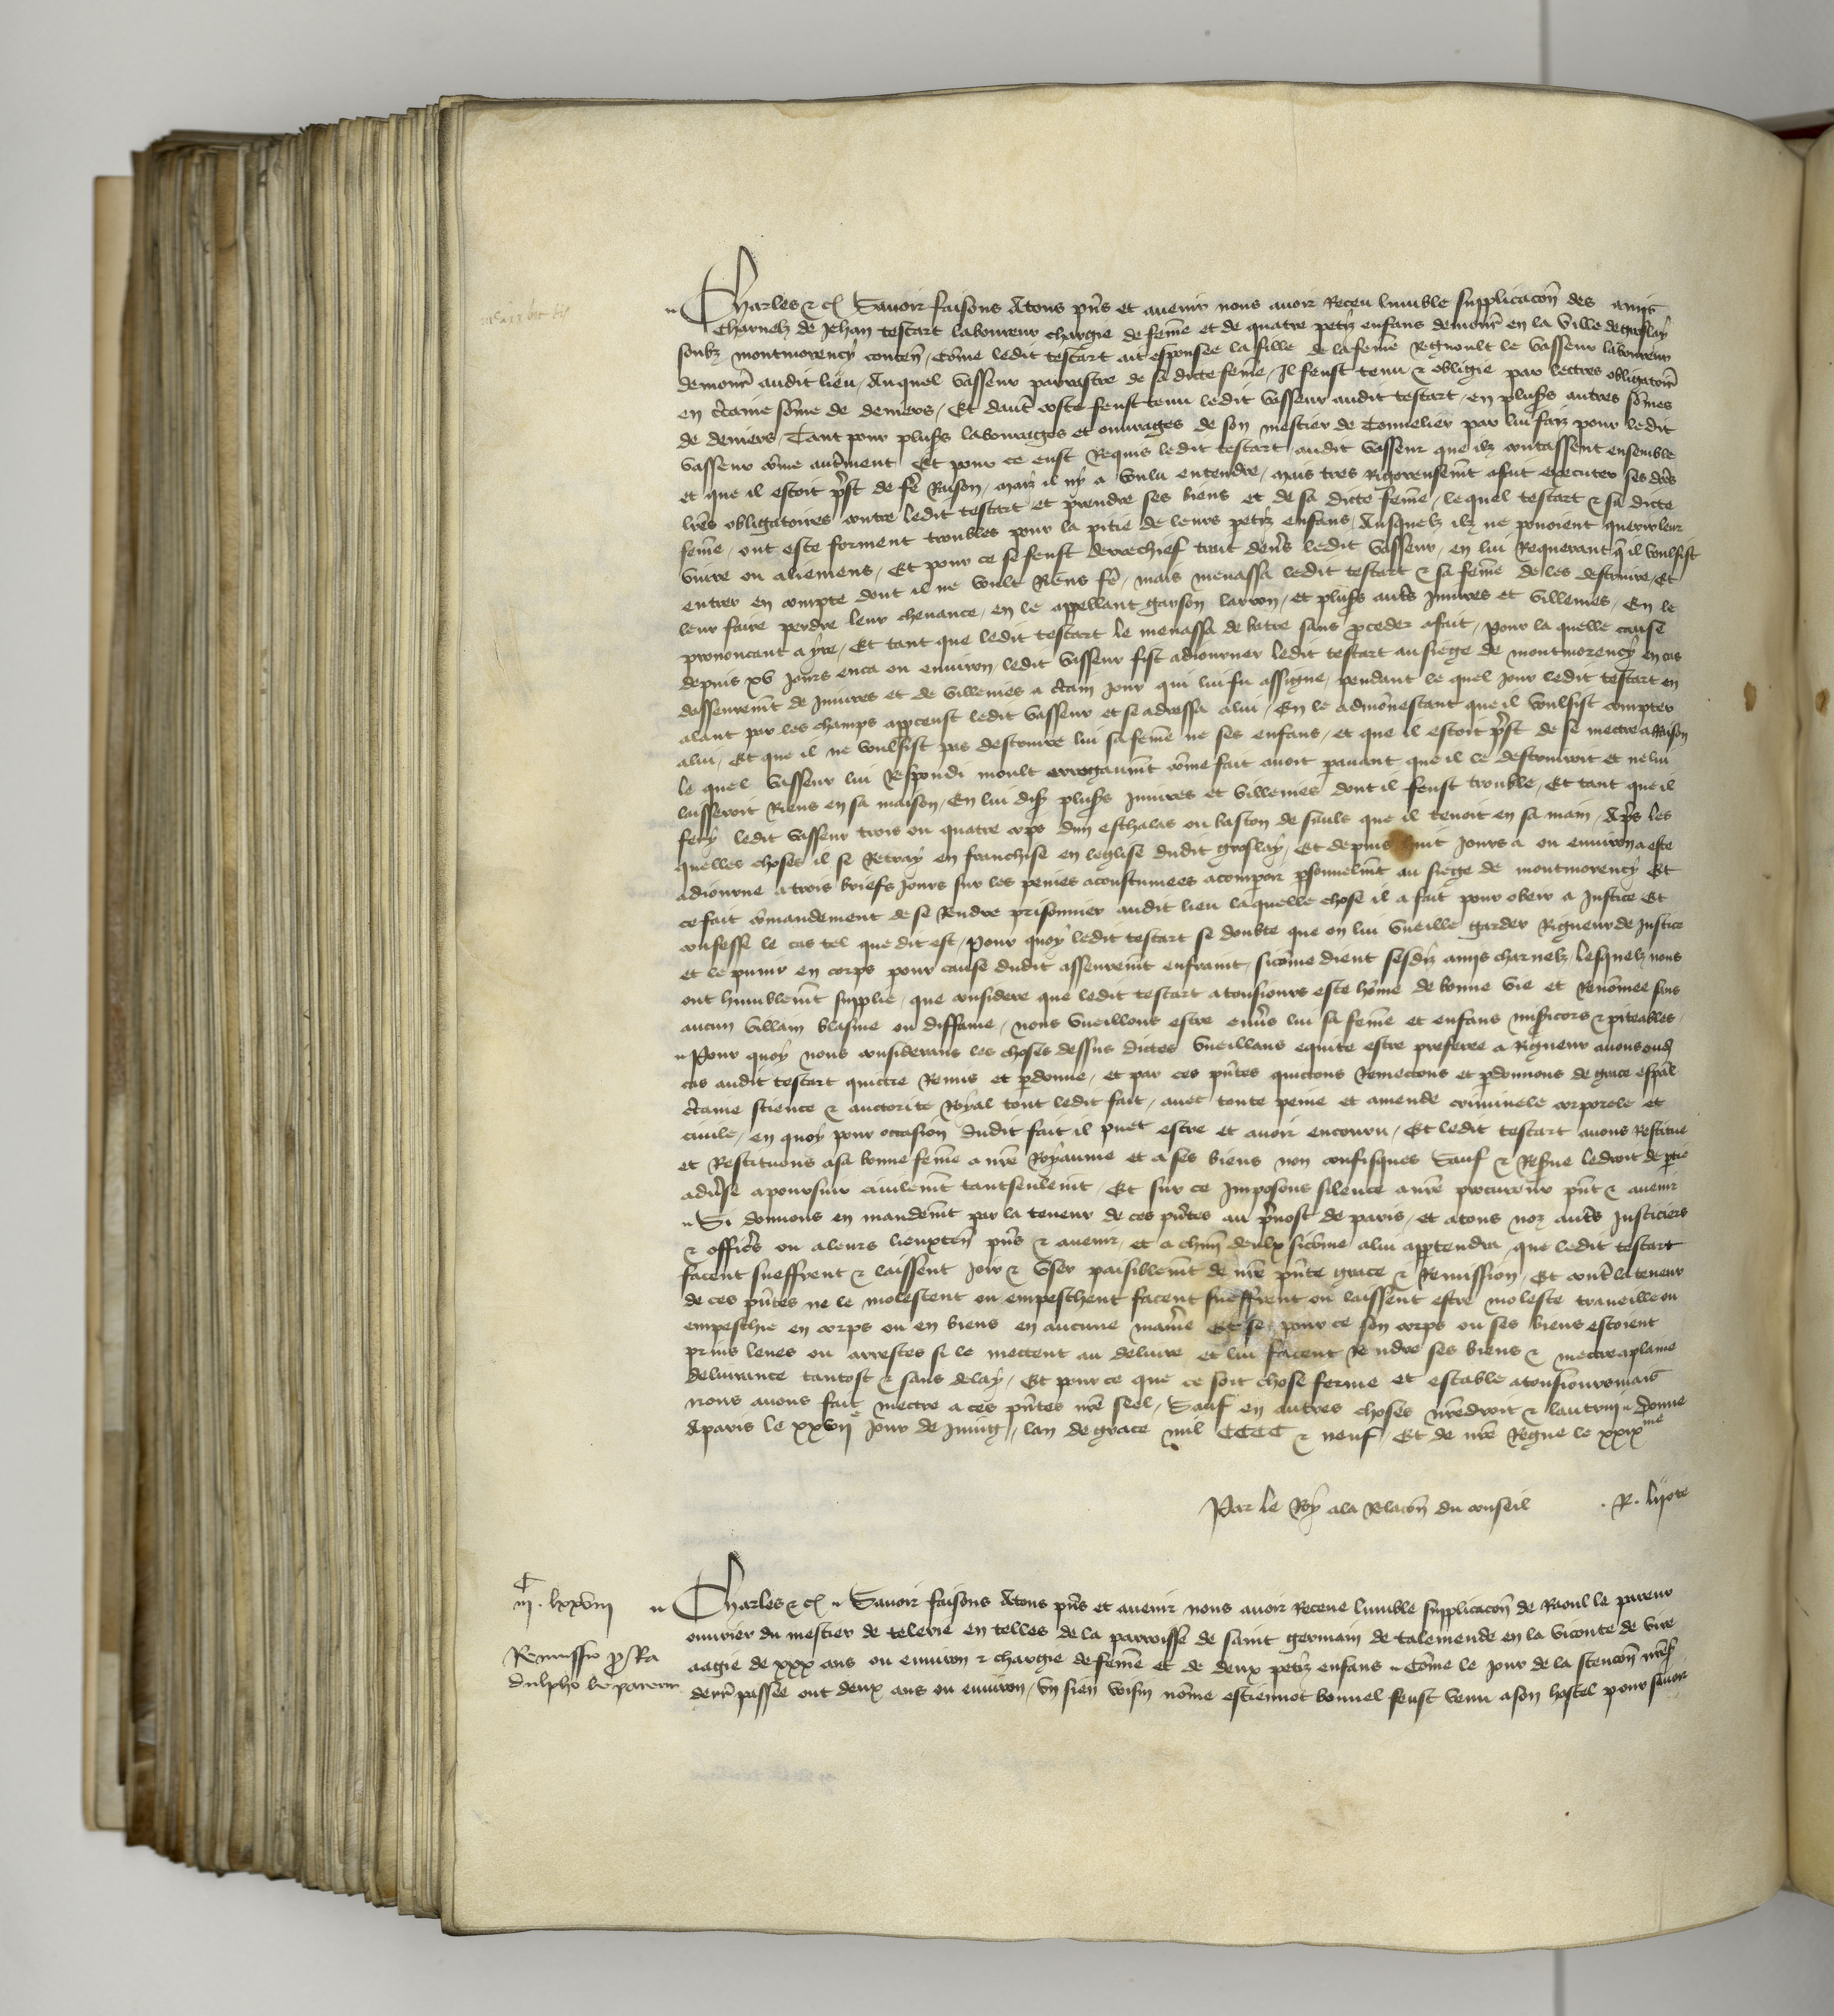 Charles &c Sauoir faisons Atous pñs et auenir nous auoir Receu lumble supplicacoñ des amis
charnelz de Jehan testart laboureur chargie de feme et de quatre petiz enfans demour̃ en la ville de groslay
soubz montmorency conteñ Cõme ledit testart ait esponsee la fille de la feme Regnoult le vasseur laboureur
demour̃ audit lieu Auquel vasseur parrastre de sa dicte feme Il feust tenu & obligie par lectres obligatoir̃
en c̃taine sõme de deniers Et daut̃ coste feust tenu ledit vasseur audit testart en plus̃s autres sõmes
de deniers Tant pour plus̃s labourages et ouurages de son mestier de Tonnelier par lui faiz pour ledit
vasseur cõme aut̃ment Et pour ce eust Requis ledit testart audit vasseur que ilz contassent ensemble
et que il estoit p̃st de fe Raison maiz il ny a voulu entendre mais tres Rigoreusemt̃ a fait executer ses dc̃s
lr̃es obligatoires contre ledit testart et prendre ses biens et de sa dicte feme lequel testart & sa dicte
feme ont este forment troubles pour la pitie de leurs petiz enfans Ausquelz ilz ne pouoient querir leur
viure ou aliemens Et pour ce se feust derrechief trait deu̾s ledit vasseur en lui Requerant q̃ il voulsist
entrer en compte dont il ne voult Riens fe mais menassa ledit testart & sa feme de les destruire Et
leur faire perdre leur cheuance en le appellant garson larron et plus̃s aut̃s Iniures et villenies En le
prouocant a yre Et tant que ledit testart le menassa de batre sans p̃ceder a fait pour la quelle cause
depuis xv Jours enca ou enuiron ledit vasseur fist adiourner ledit testart au siege de montmorency en cas
dasseuremt̃ de Iniures et de villenies a c̃tain Jour qui lui fu assigne pendant le quel Jour ledit testart en
alant par les champs apperceust ledit vasseur et se adressa a lui En le admõnestant que il voulsist compter
a lui Et que il ne voulsist pas destruire lui sa feme ne ses enfans et que il estoit p̃st de se mectre a Raison
le quel vasseur lui Respondi moult arrogaumt̃ cõme fait auoit parauant que il le destruiroit et ne lui
laisseroit Riens en sa maison En lui dis̃ plus̃s Iniures et villenies dont il feust trouble Et tant que il
fery ledit vasseur trois ou quatre cops dun eschalas ou baston de saulx que il tenoit en sa main Ap̃s les
quelles choses il se Retray en franchise en leglise dudit groslay Et depuis huit Jours a ou enuiron a este
adiourne a trois briefs Jours sur les peines acoustumees a comparoir p̃sonnelmt̃ au siege de montmorency Et
ce fait cõmandement de se Rendre prisonnier audit lieu laquelle chose il a fait pour obeir a Justice Et
confesse le cas tel que dit est pour quoy ledit testart se doubte que on lui vueille garder Rigueur de Justice
et le punir en corps pour cause dudit asseuremt̃ enfraint sicõme dient sesdiz amis charnelz lesquelz nous
ont humblemt̃ supplie que considere que ledit testart a tousiours este hõme de bonne vie et Renõmee sans
aucun villain blasme ou diffame nous vueillons estre enu̾s lui sa feme et enfans misericors & piteables
Pour quoy nous considerans les choses dessus dictes vueillans equite estre preferee a Rigueur auons oud̃
cas audit testart quictie Remis et p̃donne et par ces pñtes quictons Remectons et p̃donnons de grace esp̃al
c̃taine science & auctorite Royal tout ledit fait auec toute peine et amende criminele corporele et
ciuile en quoy pour occasion dudit fait il puet estre et auoir encouru Et ledit testart auons Restitue
et Restituons a sa bonne feme a nr̃e Royaume et a ses biens non confisques Sauf & Reserue le droit de p̃tie
adu̾se a poursuir ciuilemt̃ tantseulemt̃ Et sur ce Imposons silence a nr̃e procureur pñt & auenir
Si donnons en mandemt̃ par la teneur de ces pñtes au p̃uost de paris et a tous noz aut̃s Justiciers
& officrs ou a leurs lieuxten̄ pñs & auenir et a chũn deulx sicõme a lui app̃tendra que ledit testart
facent sueffrent & laissent Joir & vser paisiblemt̃ de nr̃e pñte grace & Remission Et cont̃ la teneur
de ces pñtes ne le molestent ou empeschent facent sueffrent ou laissent estre moleste traueille ou
empeschie en corps ou en biens en aucune manie Et se pour ce son corps ou ses biens estoient
prins leues ou arrestes si le mectent au deliure et lui facent Rendre ses biens & mectre a plaine
deliurance tantost & sans delay Et pour ce que ce soit chose ferme et estable a tousiours mais
nous auons fait mectre a ces pñtes nr̃e seel Sauf en autres choses nr̃e droit & lautrui Donne
A paris le xxvii e Jour de Juing lan de grace mil CCCC & neuf Et de nr̃e Regne le xxix me
Par le Roy a la Relacoñ du conseil . R. lyote
C
iii . lxxviii
Remissio p̃ Ra
dulpho le pareur
Charles &c Sauoir faisons Atous pñs et auenir nous auoir Receue lumble supplicacoñ de Raoul le pareur
ouurier du mestier de telerie en telles de la parroisse de saint germain de talemende en la viconte de vire
aagie de xxx ans ou enuiron & chargie de feme et de deux petiz enfans Cõme le Jour de la scencoñ nr̃e s̃
derr̃ passee out deux ans ou enuiron vn sien voisin nõme estiennot bonnel feust venu a son hostel pour sauoir